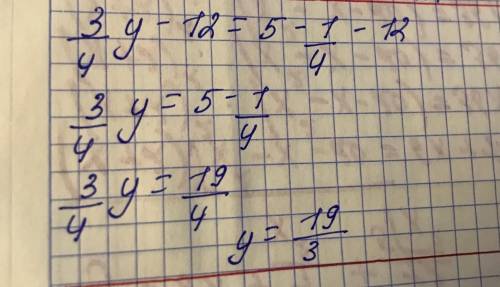 3/4 y - 12 = 5 - 1/4 - 12
3/4 y = 5 - 1/4
3/4 y = 19/4
y = 19/3